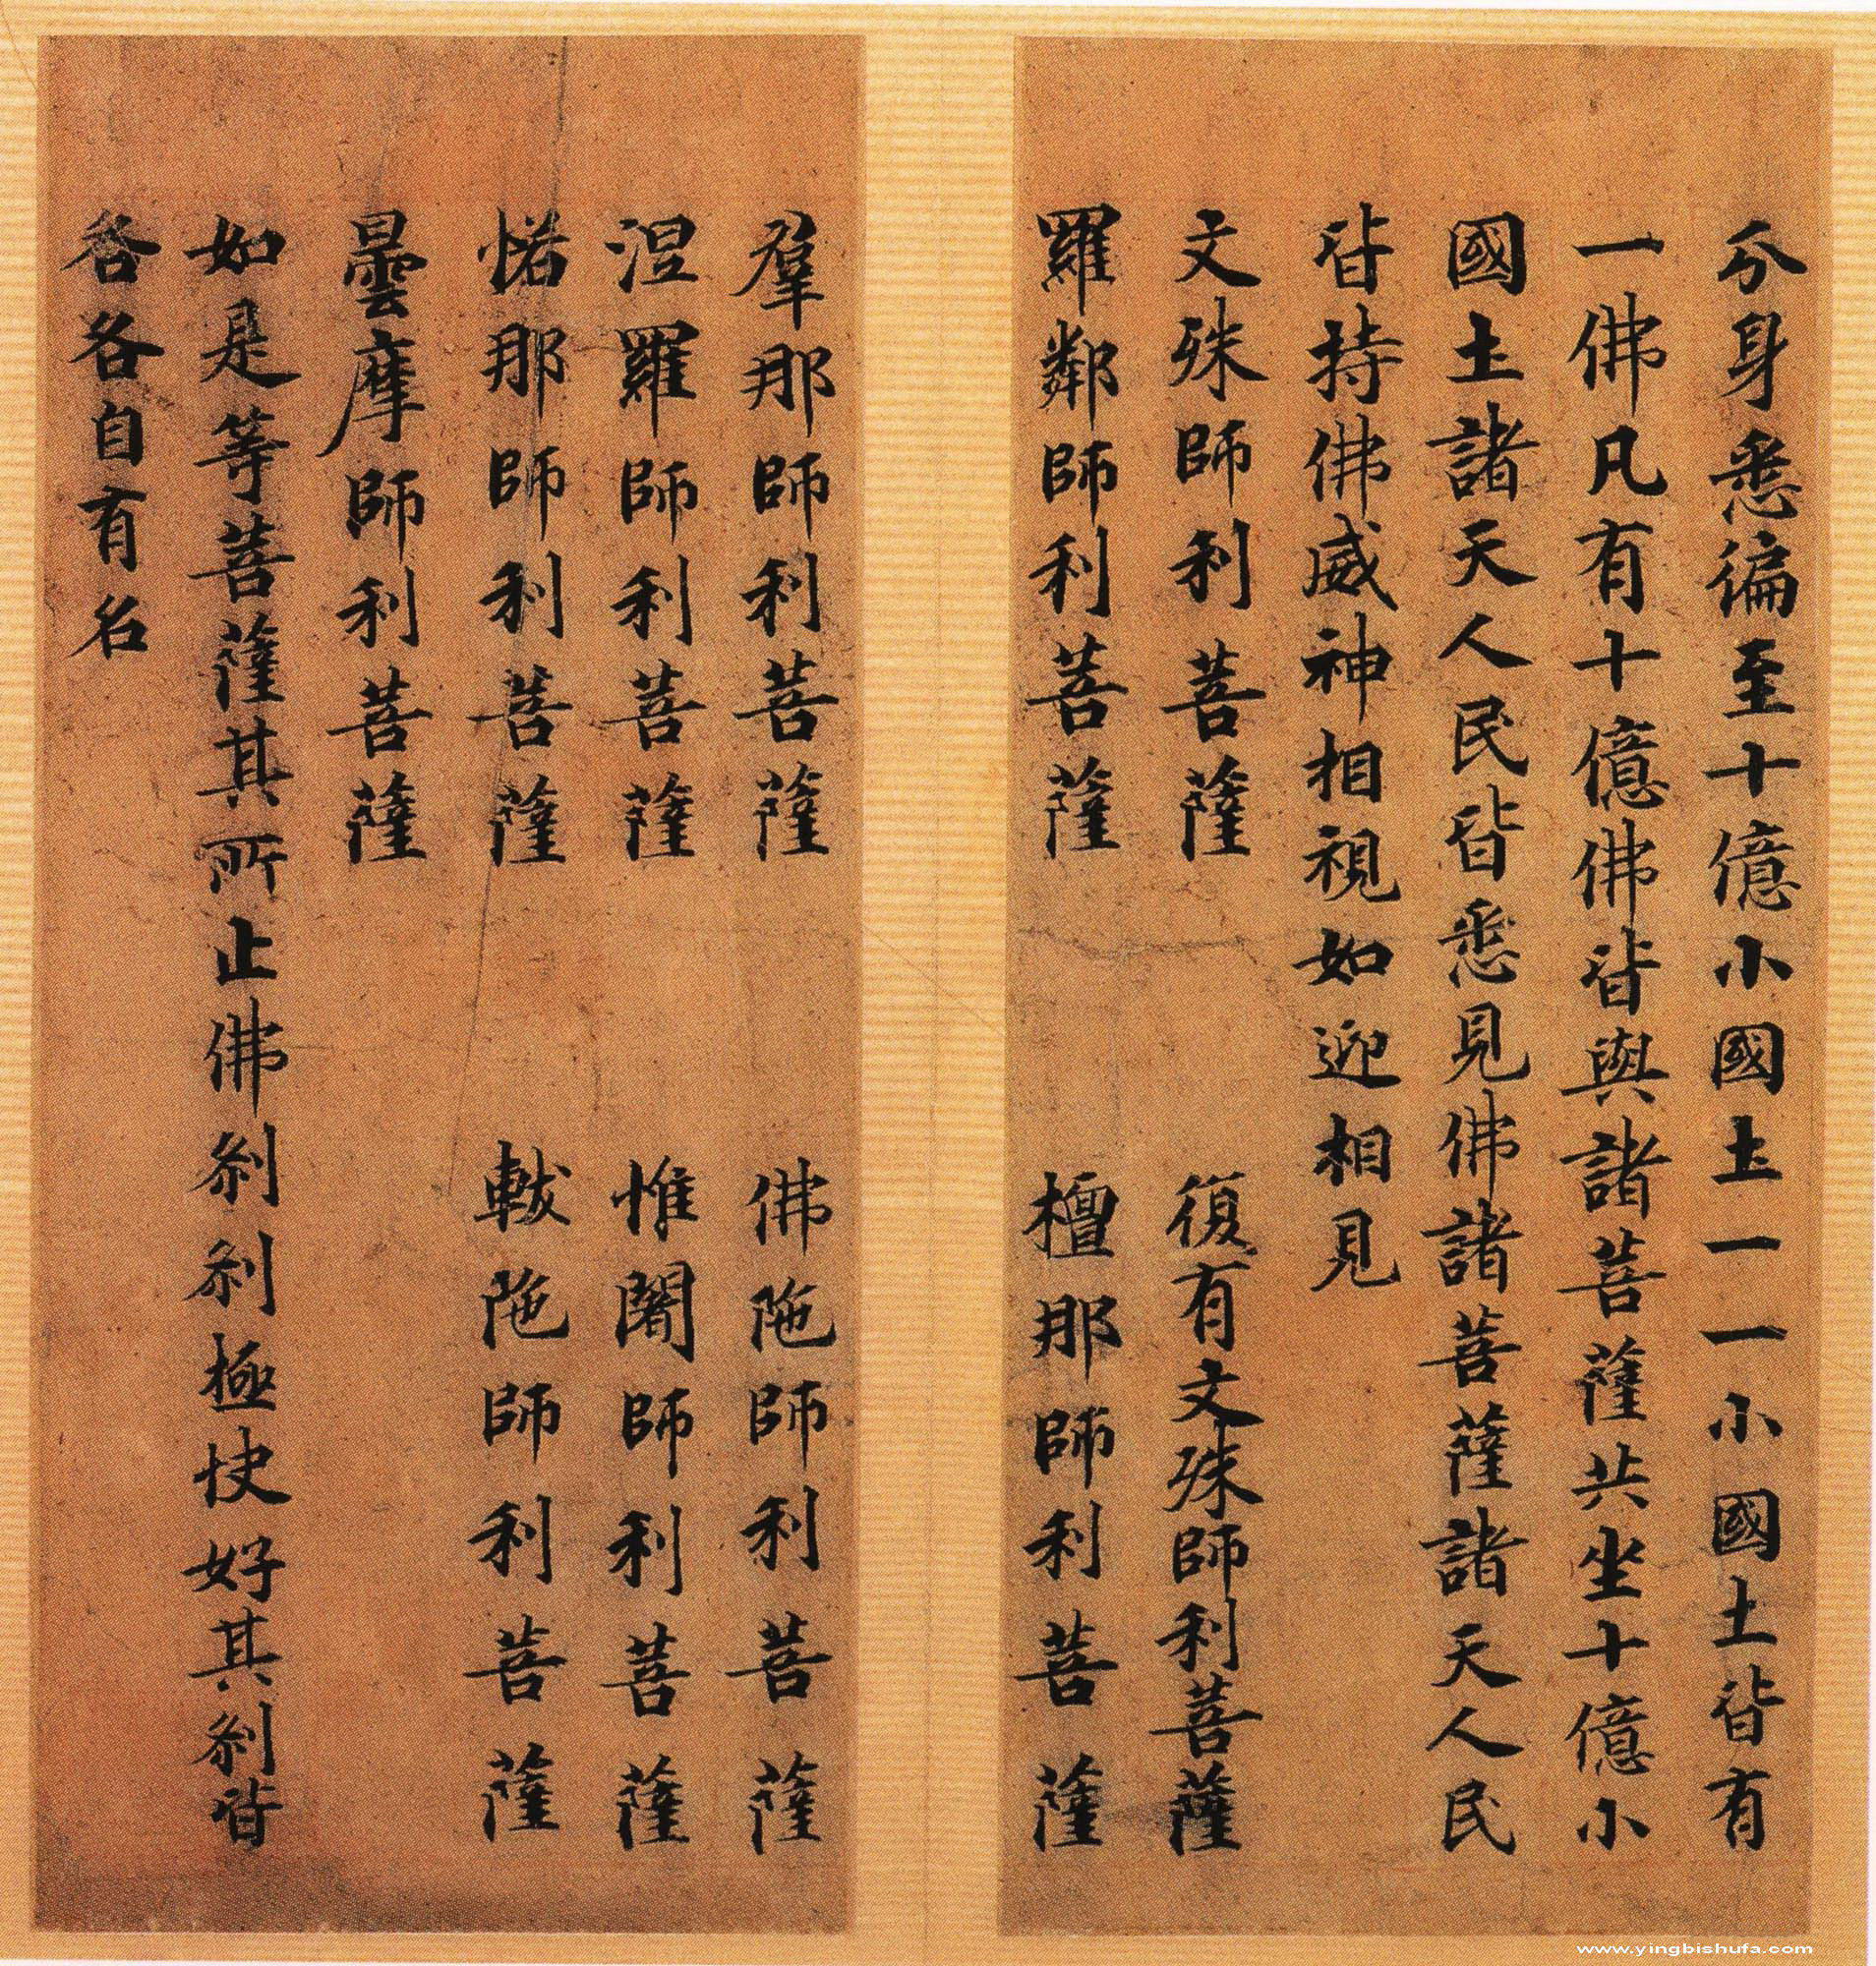 分身悉徧至十億小國土一一小國土皆有
一佛凡有十億佛皆與諸菩薩共坐十億小
國土諸天人民皆悉見佛諸菩薩諸天人民
皆持佛威神相視如迎相見
文殊師利菩薩 復有文殊師利菩薩
羅鄰師利菩薩 檀那師利菩薩
羣那師利菩薩 佛陁師利菩薩
涅羅師利菩薩 惟闍師利菩薩
惹那師利菩薩 軷陁師利菩薩
曇摩師利菩薩
如是等菩薩其所止佛剎剎極快好其剎皆
各各自有名
www.yingbishufa.com